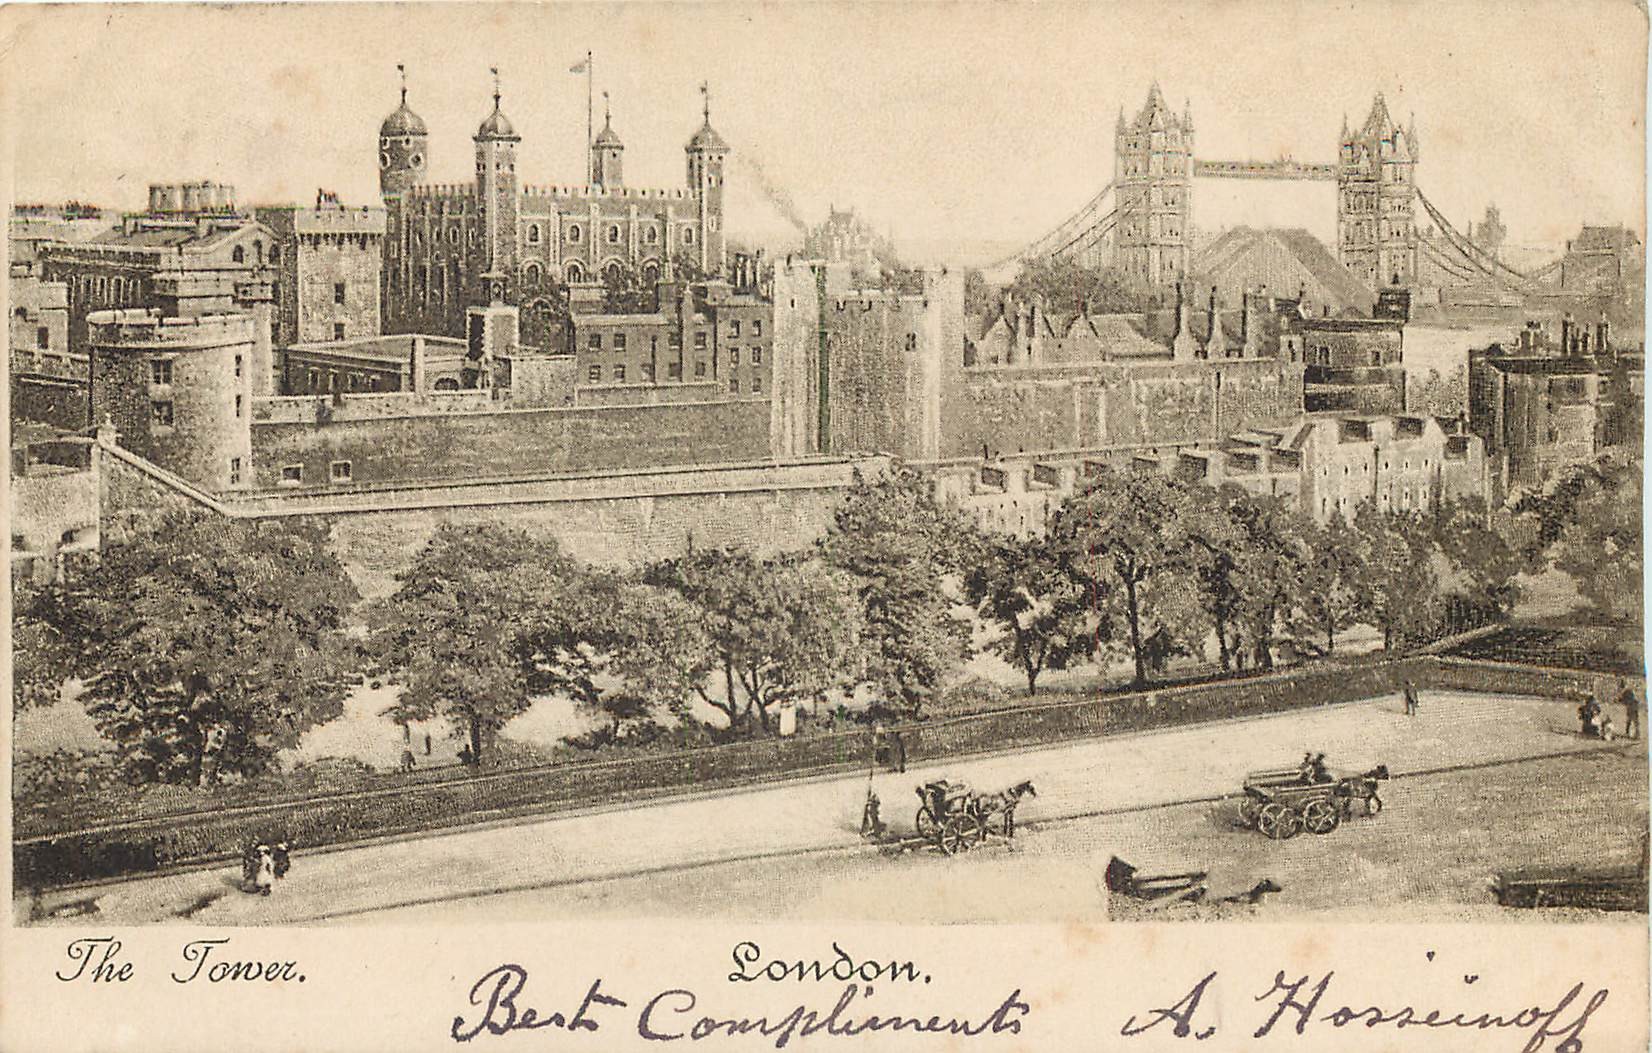 The Tower. London.
Best Compliments A. Hosseinoff